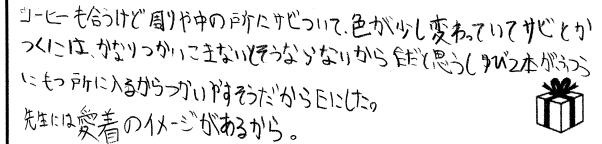 コーヒーも合うけど周りや中の所にサビついて、色が少し変わっていてサビとか
つくには、かなりつかいこまないとそうならないからEだと思うし ゆび2本がふつう
にもつ所に入るからつかいやすそうだからEにした。
先生には愛着のイメージがあるから。